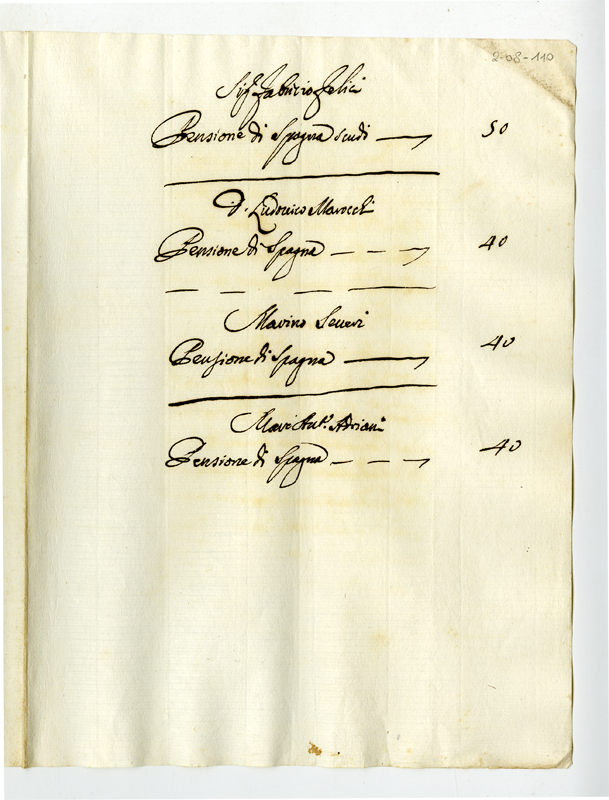 2-08-110
Sigr Fabricio Felici
Pensione di Spagna scudi 50
D. Ludovico Marocch
Pensione di Spagna 40
Marino Severi
Pensione di Spagna 40
Marc'Ant.o Adriani
Pensione di Spagna 40